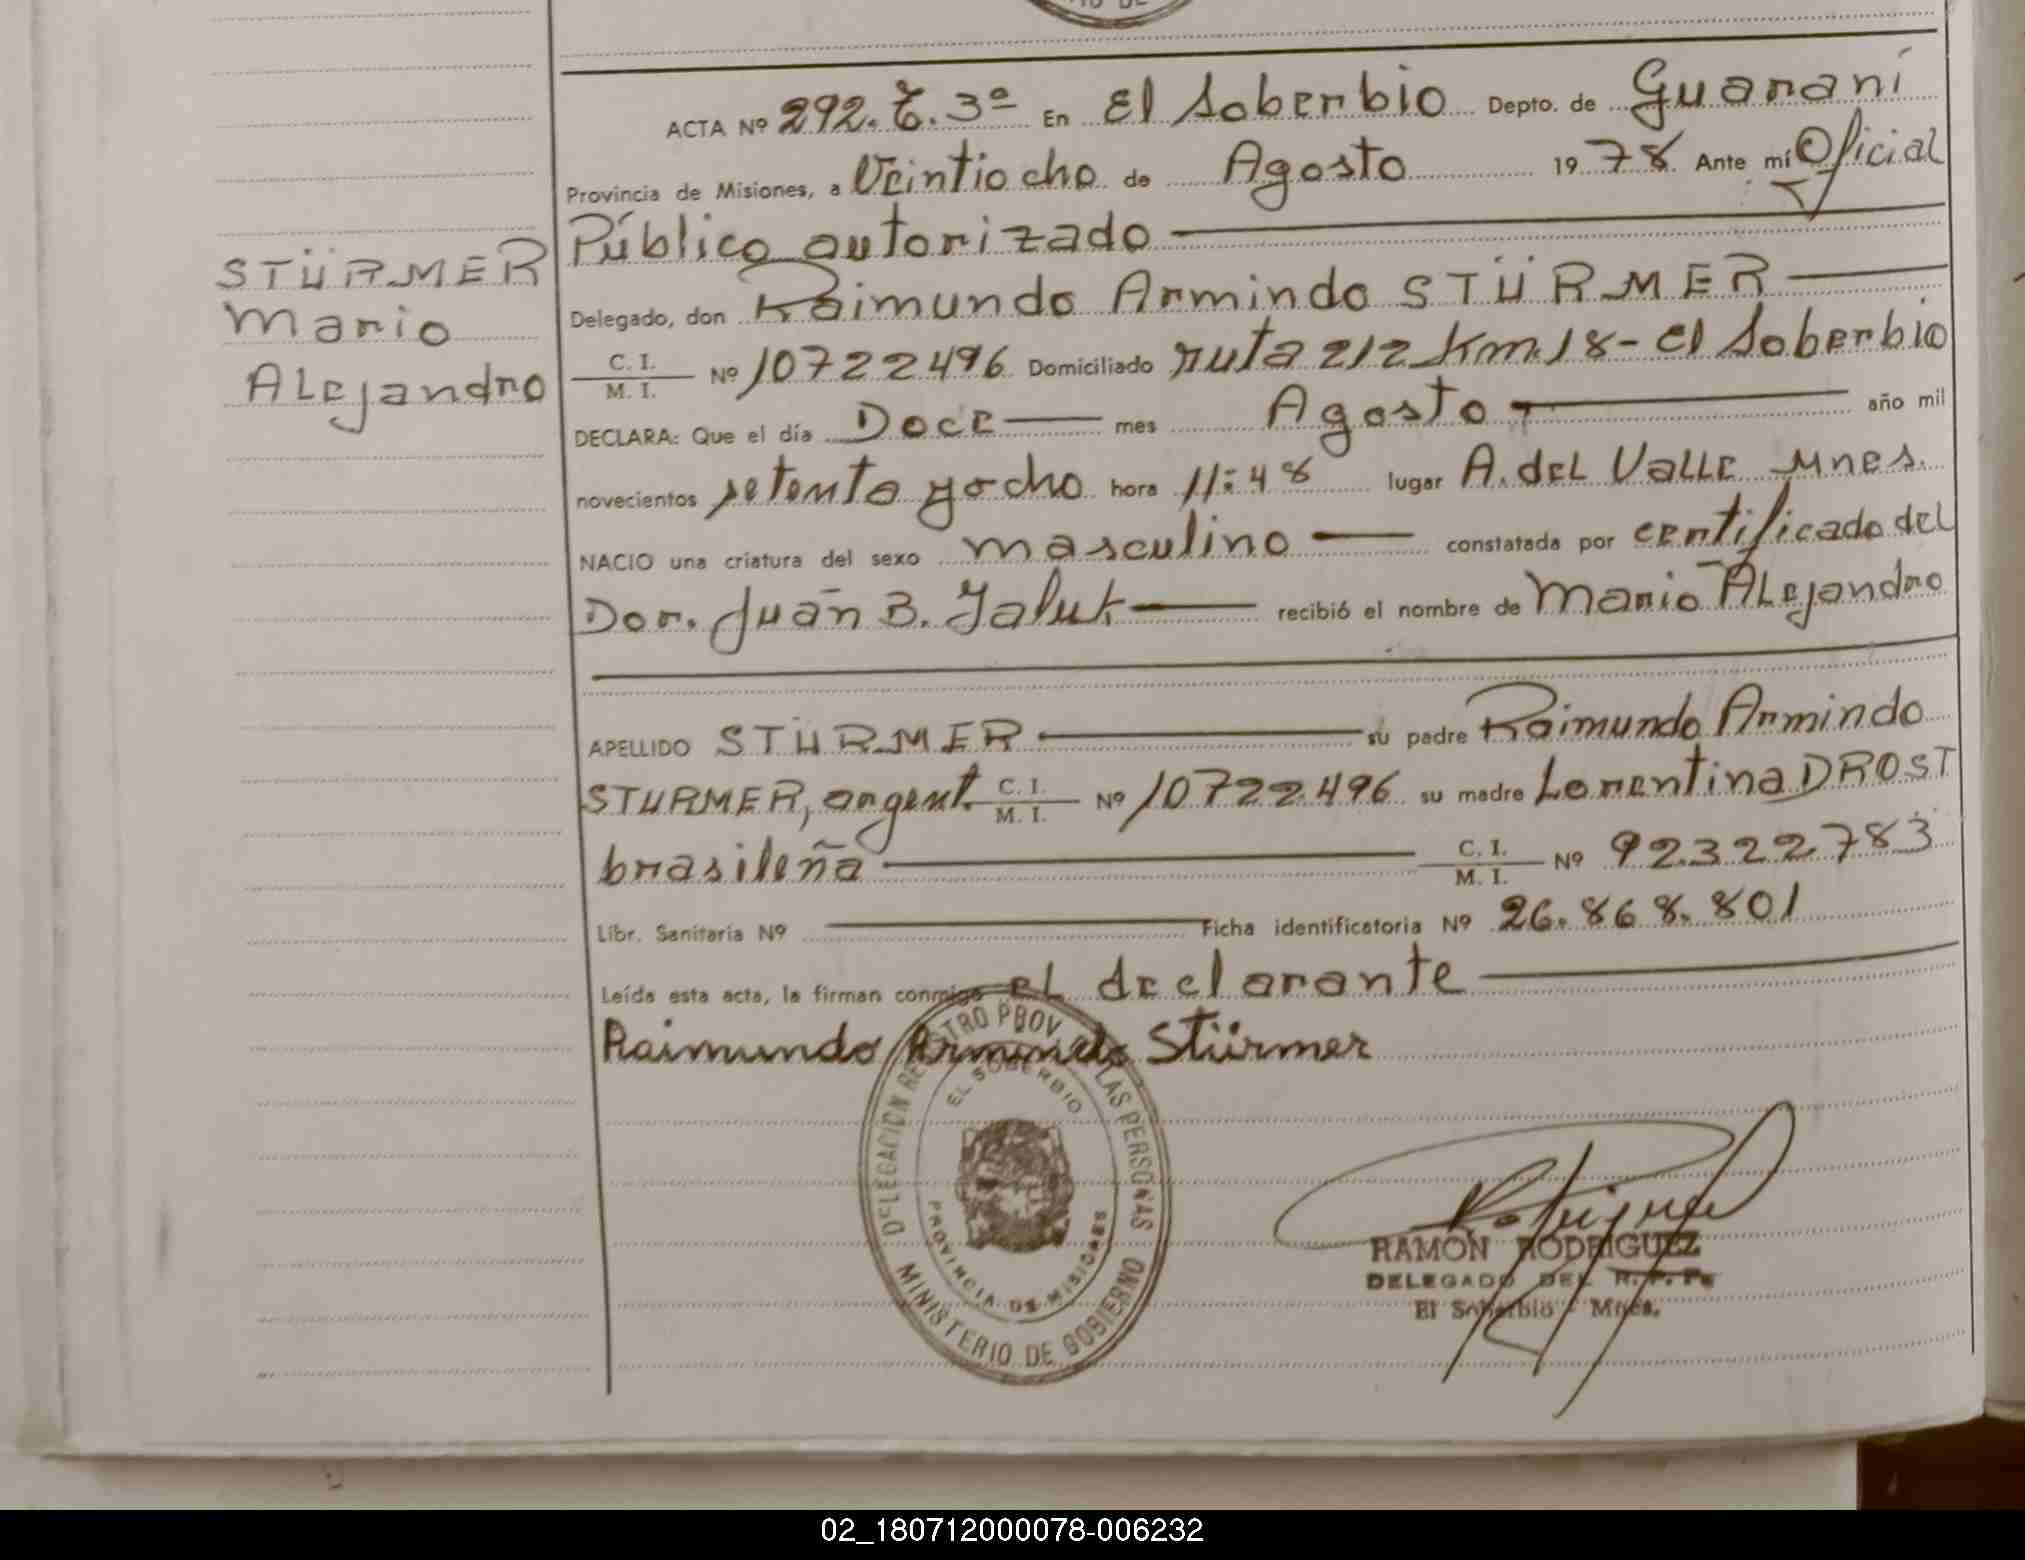 ACTA Nº 292. T. 3º En El Soberbio Depto. de Guaraní
Provincia de Misiones, a Veintiocho de Agosto 1978 Ante mí Oficial
Público autorizado
STÜRMER
Mario
Alejandro
Delegado, don Raimundo Armindo STÜRMER
C. I.
M. I. Nº 10722496 Domiciliado ruta 212 Km. 18 - El Soberbio
DECLARA: Que el día Doce mes Agosto año mil
novecientos setenta y ocho hora 11:48 lugar A. del Valle Mnes.
NACIO una criatura del sexo masculino constatada por certificado del
Dor. Juan B. recibió el nombre de Mario Alejandro
APELLIDO STÜRMER su padre Raimundo Armindo
STURMER, argent. C. I. M. I. Nº 10722496 su madre Lorentina DROST
brasileña C. I. M. I. Nº 92322783
Libr. Sanitaria Nº Ficha identificatoria Nº 26.868.801
Leída esta acta, la firman conmigo el declarante
Raimundo Armindo Stürmer
DELEGACION REGISTRO PROV. LAS PERSONAS
EL SOBERBIO
PROVINCIA DE MISIONES
MINISTERIO DE GOBIERNO
RAMON RODRIGUEZ
DELEGADO DEL R. P. P.
El Soberbio - Mnes.
02_180712000078-006232